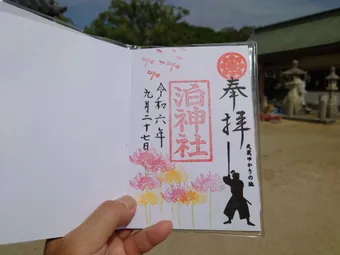 奉拝
泊神社
令和六年
九月二十七日
武蔵ゆかりの地